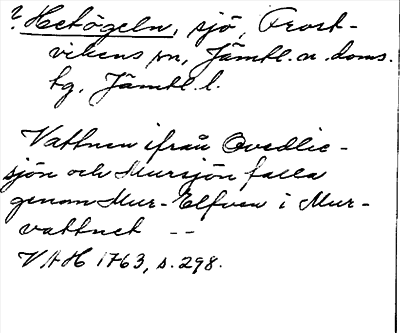 ? Hetögeln, sjö, Frost-
vikens sn, Jämtl. n. doms.
tg, Jämtl. l.
Vattnen ifrån Qvedlie-
sjön och Mursjön falla
genom Mur-Elfven i Mur-
vattnet --
VAH 1763, s. 298.